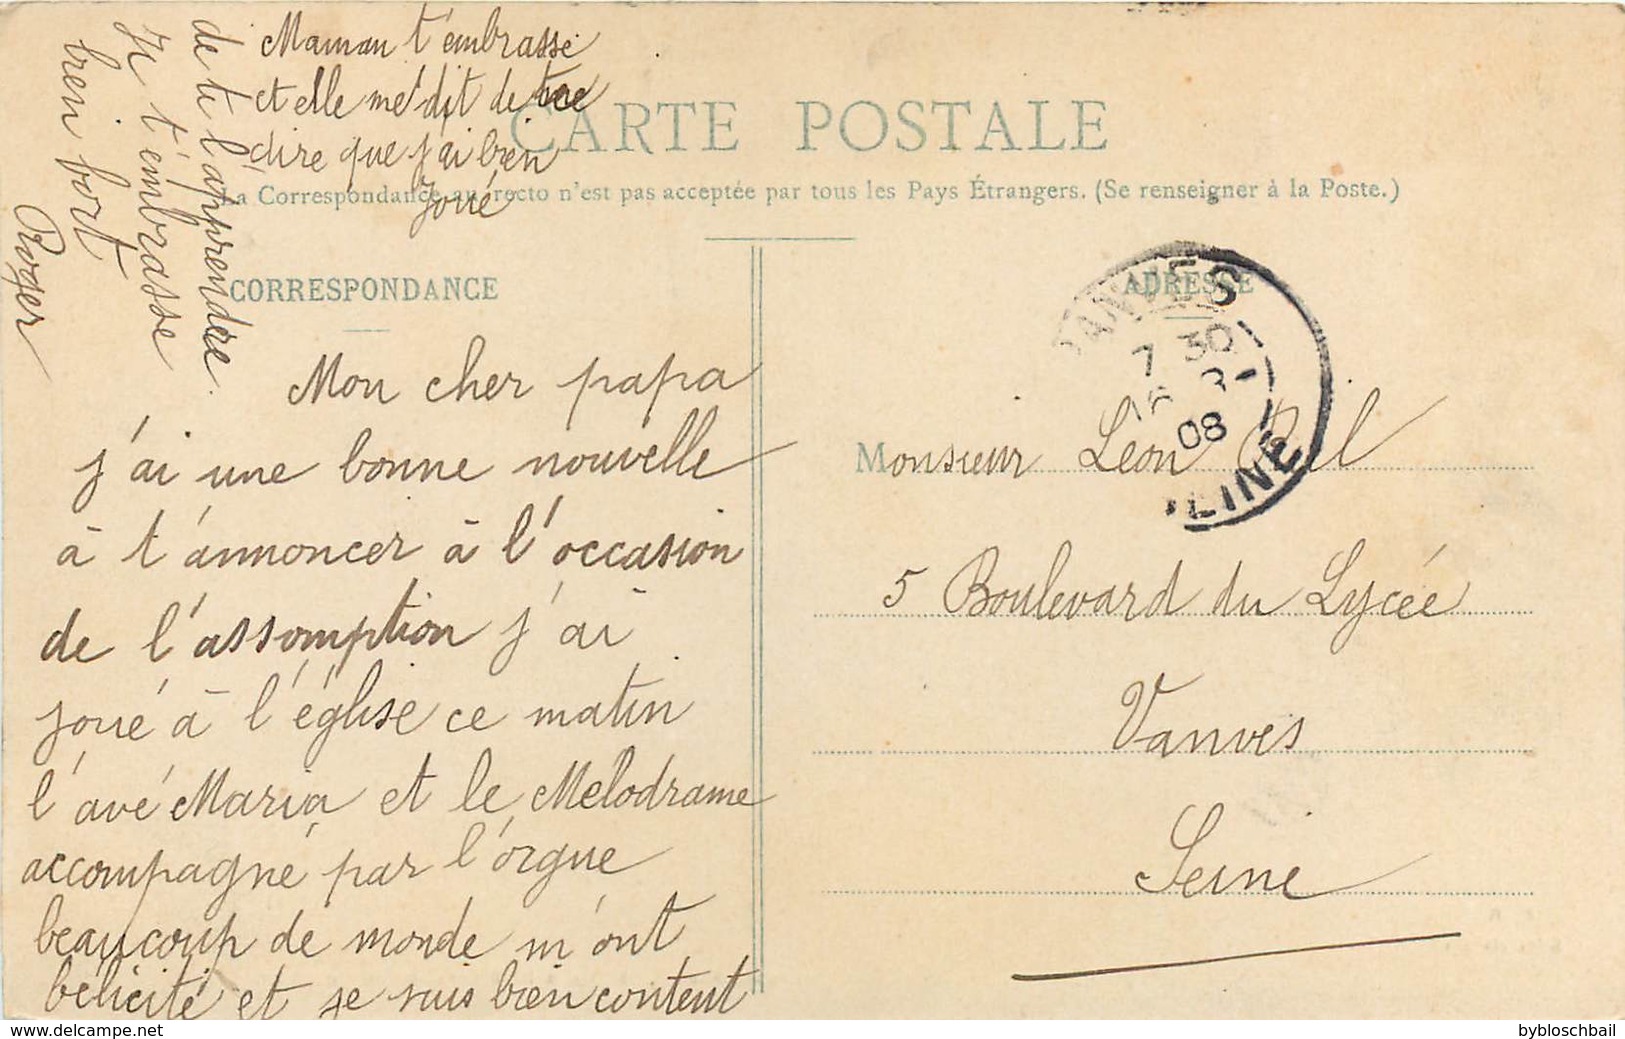 CARTE POSTALE
La Correspondance au recto n'est pas acceptée par tous les Pays Étrangers. (Se renseigner à la Poste.)
CORRESPONDANCE
Mon cher papa
j'ai une bonne nouvelle
à t'annoncer à l'occasion
de l'assomption j'ai
joué à l'église ce matin
l'avé Maria et le Mélodrame
accompagné par l'orgue
beaucoup de monde m'ont
félicité et je suis bien content
de te l'apprendre.
Je t'embrasse
bien fort
Roger
Maman t'embrasse
et elle me dit de te
dire que j'ai bien
joué
ADRESSE
VANVES
7 30
16 8
08
SEINE
Monsieur Léon
5 Boulevard du Lycée
Vanves
Seine
bybloschbail
www.delcampe.net